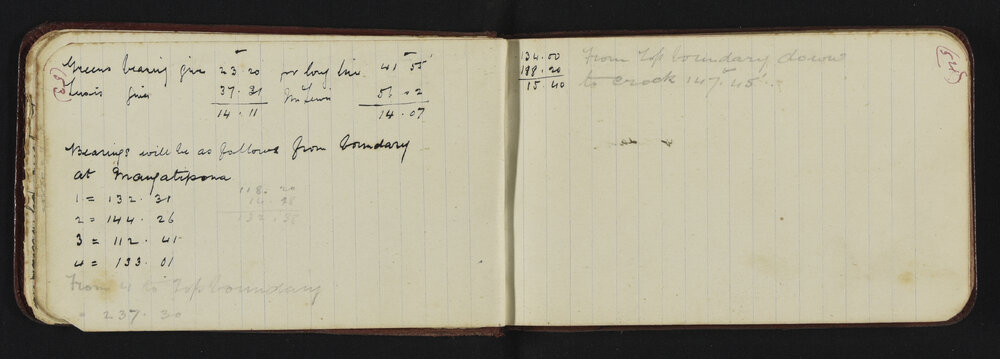 Greens bearing give 23.20 or long line 41 55
Lewis gives 37.31 Mr Lewis 56.02
14.11 14.07
Bearings will be as follows from boundary
at Mangatipona
118.20
1 = 132.31
132.38
2 = 144.26
3 = 112.41
4 = 133.01
From 4 to Top boundary
= 237.30
134.00
15.40
From Top boundary down
to creek 147.45